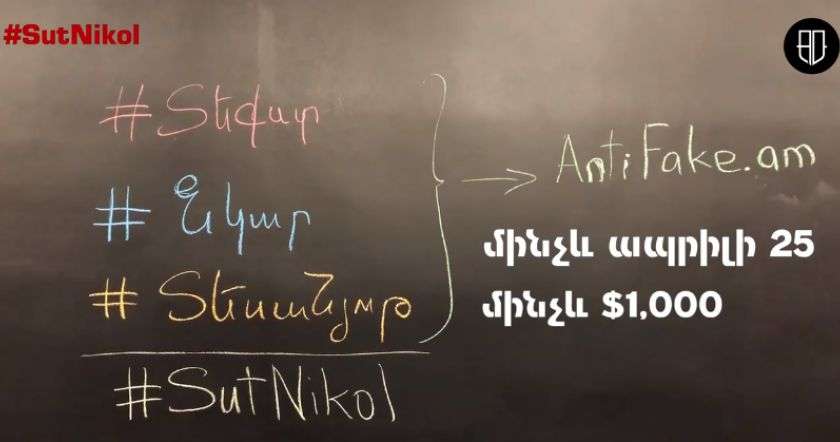 #SutNikol
#Տեքստ
#Նկար
#Տեսանյութ
#SutNikol
AntiFake.am
մինչև ապրիլի 25
մինչև $1,000